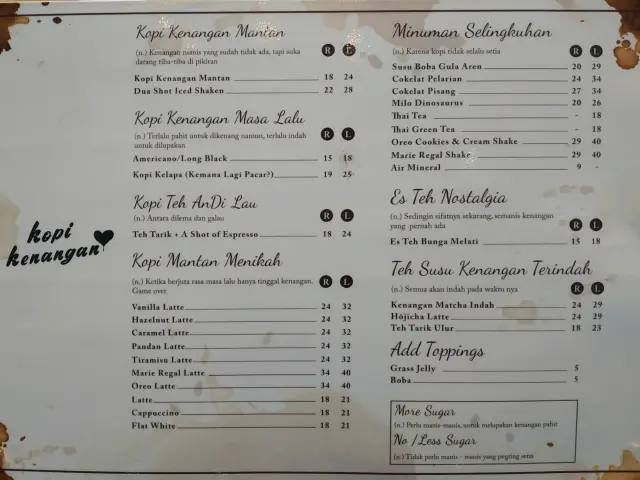 kopi
kenangan
Kopi Kenangan Mantan
(n.) Kenangan manis yang sudah tidak ada, tapi suka R L
datang tiba-tiba di pikiran
Kopi Kenangan Mantan 18 24
Dua Shot Iced Shaken 22 28
Kopi Kenangan Masa Lalu
(n.) Terlalu pahit untuk dikenang namun, terlalu indah R L
untuk dilupakan
Americano/Long Black 15 18
Kopi Kelapa (Kemana Lagi Pacar?) 19 25
Kopi Teh AnDi Lau
(n.) Antara dilema dan galau R L
Teh Tarik + A Shot of Espresso 18 24
Kopi Mantan Menikah
(n.) Ketika berjuta rasa masa lalu hanya tinggal kenangan. R L
Game over
Vanilla Latte 24 32
Hazelnut Latte 24 32
Caramel Latte 24 32
Pandan Latte 24 32
Tiramisu Latte 24 32
Marie Regal Latte 34 40
Oreo Latte 34 40
Latte 18 21
Cappuccino 18 21
Flat White 18 21
Minuman Selingkuhan
(n.) Karena kopi tidak selalu setia R L
Susu Boba Gula Aren 20 29
Cokelat Pelarian 24 34
Cokelat Pisang 27 34
Milo Dinosaurus 20 26
Thai Tea - 18
Thai Green Tea - 18
Oreo Cookies & Cream Shake 29 40
Marie Regal Shake 29 40
Air Mineral 9 -
Es Teh Nostalgia
(n.) Sedingin sifatnya sekarang, semanis kenangan
yang pernah ada R L
Es Teh Bunga Melati 15 18
Teh Susu Kenangan Terindah
(n.) Semua akan indah pada waktu nya R L
Kenangan Matcha Indah 24 29
Hōjicha Latte 24 29
Teh Tarik Ulur 18 23
Add Toppings
Grass Jelly 5
Boba 5
More Sugar
(n.) Perlu manis-manis, untuk melupakan kenangan pahit
No /Less Sugar
(n.) Tidak perlu manis - manis yang penting setia